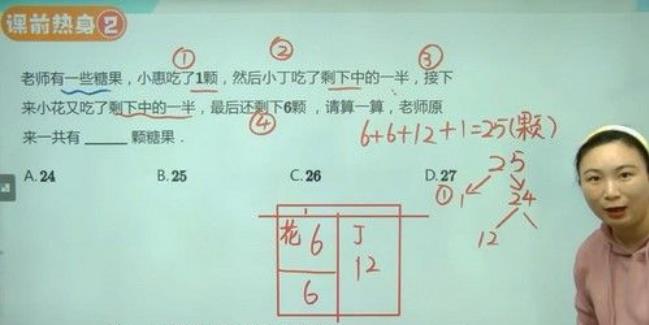 课前热身2
① ② ③
老师有一些糖果，小惠吃了1颗，然后小丁吃了剩下中的一半，接下
来小花又吃了剩下中的一半，最后还剩下6颗，请算一算，老师原
④
来一共有______颗糖果.
6+6+12+1=25(颗)
A.24 B.25 C.26 D.27
25
① 1 24
12
花 6 丁
12
6